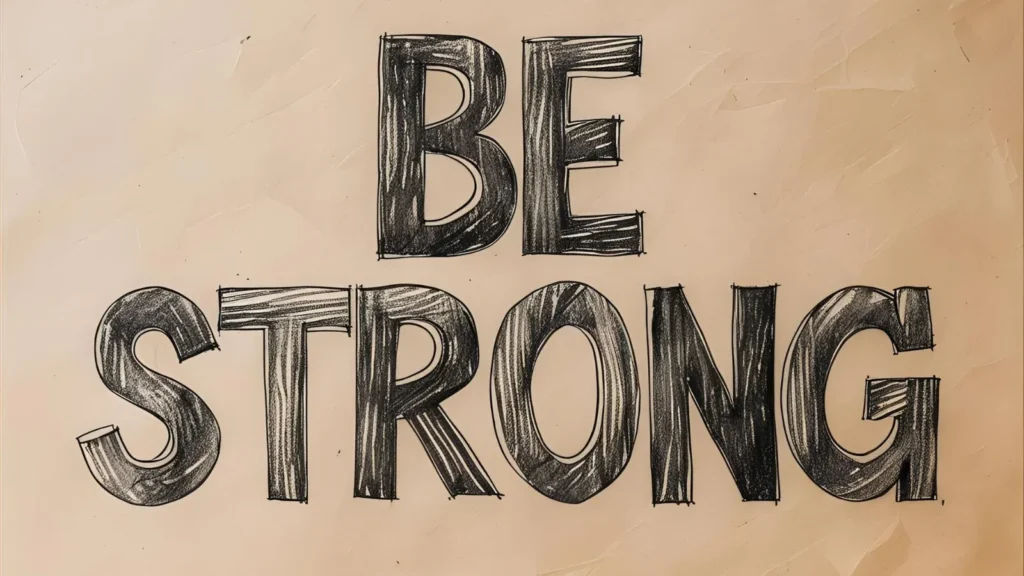 BE
STRONG